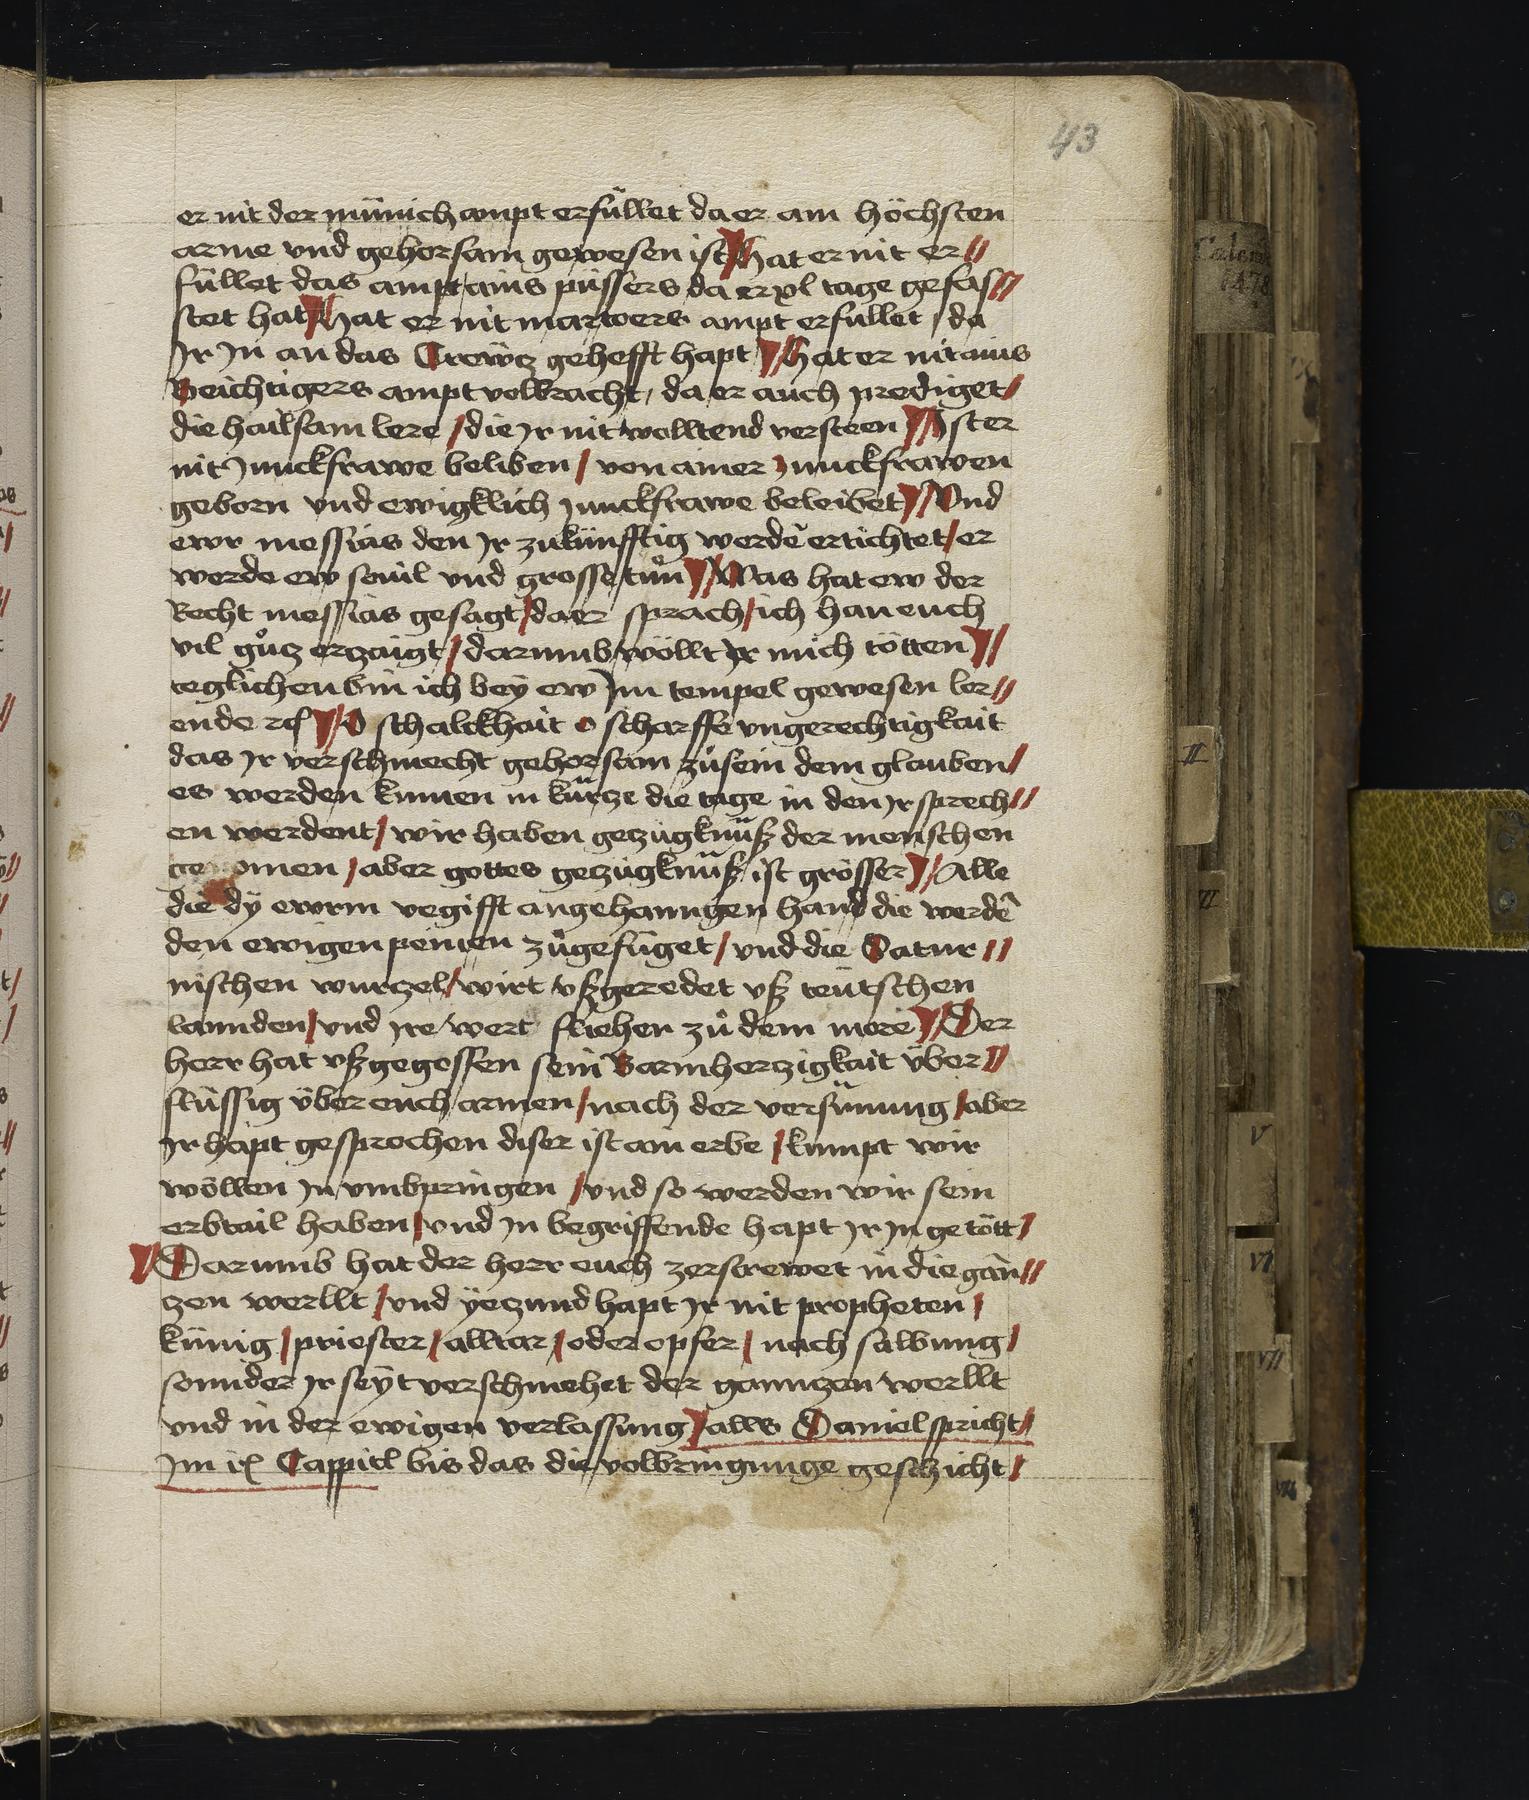 43
er nit der münich ampt erfüllet da er am höchsten
arme vnd gehorsam gewesen ist hat er nit er//
füllet das ampt ains püssers da er xl tage gefas//
stet hat hat er nit marterers ampt erfüllet / da
Ir In an das Creütz gehefft hapt hat er nit ains
Beichtigers ampt volbracht / da er auch prediget/
die hailsam lere / die Ir nit wolltend versteen Ist er
nit Junckfrawe beliben / von ainer Junckfrawen
geborn vnd ewigklich Junckfrawe beleibet Vnd
ewr messias den Ir zukünfftig werdē ertichtet / er
werde ew souil vnd grosse tun Was hat ew der
Recht messias gesagt / da er sprach / ich han euch
vil gůtz erzaigt / darumb wöllt Ir mich tötten //
teglichen bin ich bey ew Im tempel gewesen ler//
ende rc O schalckhait o scharffe vngerechtigkait
das Ir verschmecht gehorsam zůsein dem glauben/
es werden kumen in kürtze die tage in den Ir sprech//
en werdent / wir haben gezügknüß der menschen
genomen / aber gottes gezügknüß ist grösser // Alle
die dy ewrm vegifft angehanngen hand die werdē
den ewigen peinen zůgefüget / vnd die Satur //
nischen wurzel / wirt vßgeredet vß teütschen
lannden / vnd Ire wert fliehen zů dem mere Der
herr hat vßgegossen sein Barmhertzigkait über//
flüssig über euch armen / nach der versünung / aber
Ir hapt gesprochen diser ist ain erbe / kumpt wir
wöllen In vmbpringen / vnd so werden wir sein
erbtail haben / vnd In begriffende hapt Ir In getött/
Darumb hat der herr euch zerstrewet in die gan//
zen werllt / vnd yezund hapt Ir nit propheten /
künig / priester / alltar / oder opfer / noch salbung /
sonnder Ir seyt verschmehet der ganntzen werllt
vnd in der ewigen verlassung / alls Daniel spricht/
Im ix Cappitl bis das die volbringunge geschicht /
1478
II
III
V
VI
VII